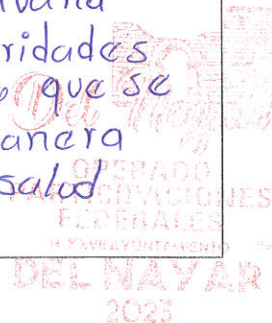 ridades
que se
anera
salud
OPERADO
FEDERALES
H XVII AYUNTAMIENTO
DEL NAYAR
2023